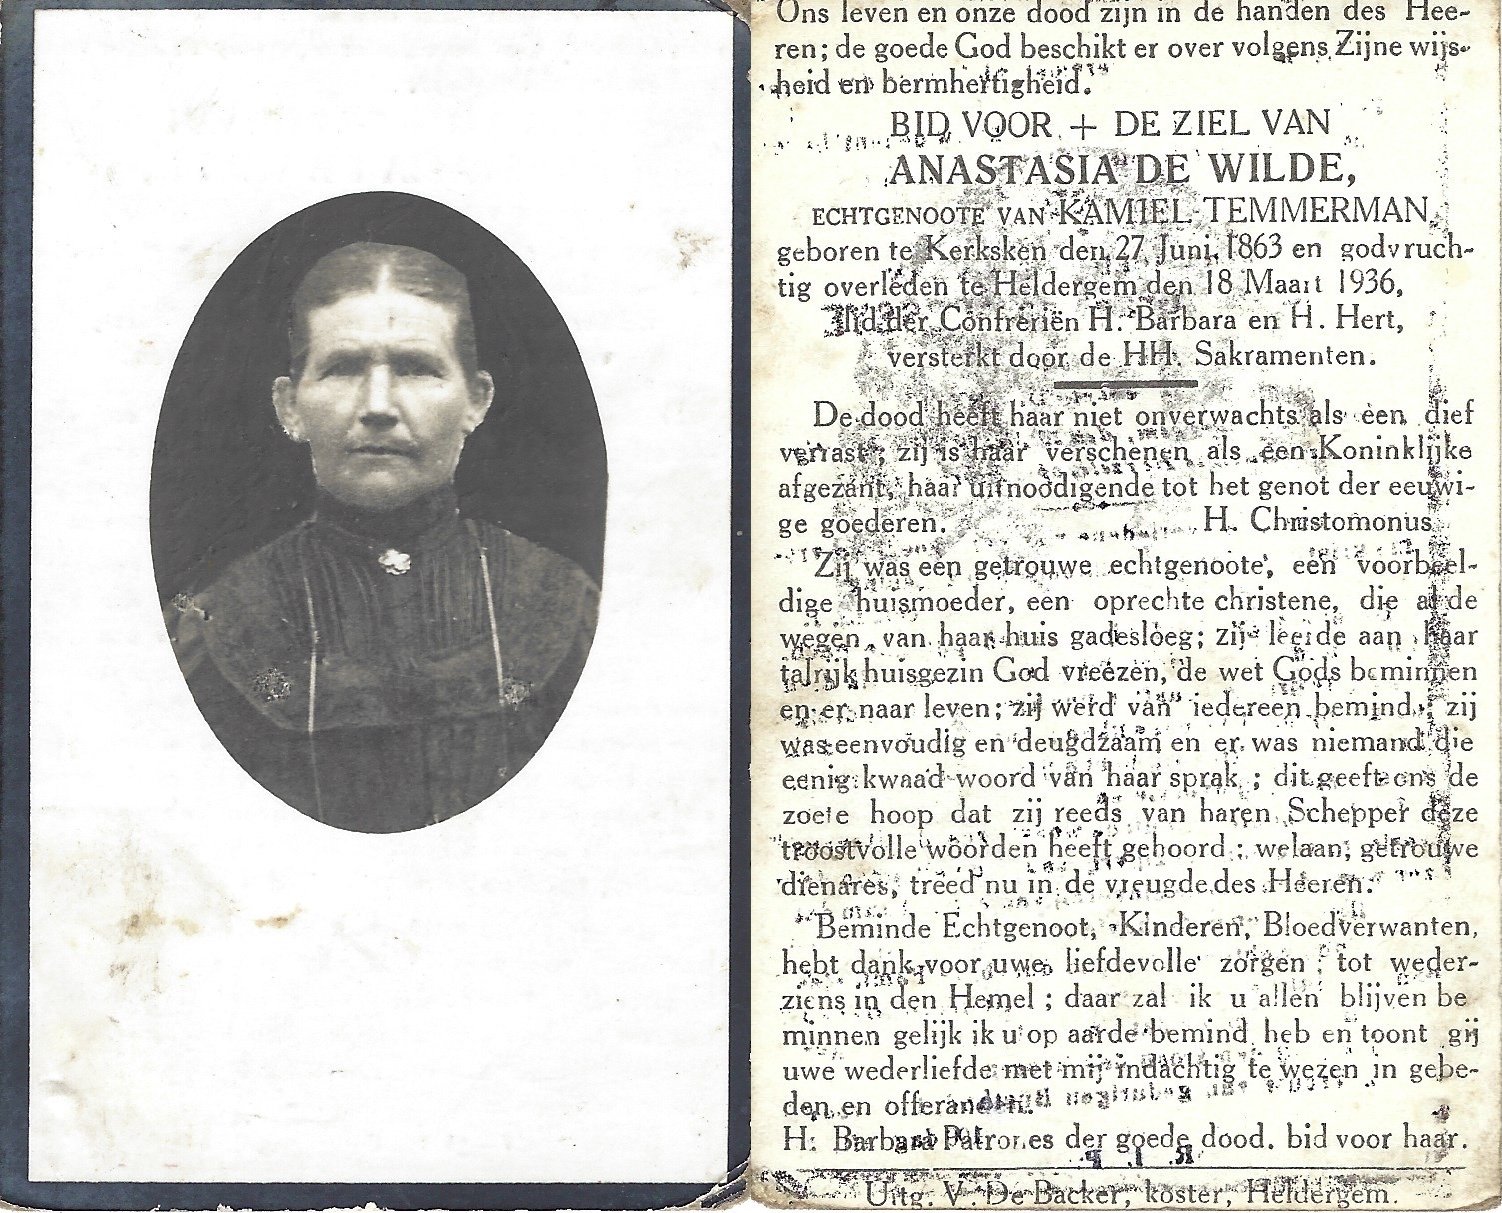 Ons leven en onze dood zijn in de handen des Hee-
ren; de goede God beschikt er over volgens Zijne wijs-
heid en bermhertigheid."
BID VOOR + DE ZIEL VAN
ANASTASIA DE WILDE,
ECHTGENOOTE VAN KAMIEL TEMMERMAN,
geboren te Kerksken den 27 Juni 1863 en godvruch-
tig overleden te Heldergem den 18 Maart 1936,
lid der Confreriën H. Barbara en H. Hert,
versterkt door de HH. Sakramenten.
De dood heeft haar niet onverwachts als een dief
verrast; zij is haar verschenen als een Koninklijke
afgezant, haar uitnoodigende tot het genot der eeuwi-
ge goederen. H. Christomonus
Zij was een getrouwe echtgenoote, een voorbeel-
dige huismoeder, een oprechte christene, die al de
wegen van haar huis gadesloeg; zij leerde aan haar
talrijk huisgezin God vreezen, de wet Gods beminnen
en er naar leven; zij werd van iedereen bemind; zij
was eenvoudig en deugdzaam en er was niemand die
eenig kwaad woord van haar sprak; dit geeft ons de
zoete hoop dat zij reeds van haren Schepper deze
troostvolle woorden heeft gehoord: welaan, getrouwe
dienares, treed nu in de vreugde des Heeren.
Beminde Echtgenoot, Kinderen, Bloedverwanten,
hebt dank voor uwe liefdevolle zorgen; tot weder-
ziens in den Hemel; daar zal ik u allen blijven be
minnen gelijk ik u op aarde bemind heb en toont gij
uwe wederliefde met mij indachtig te wezen in gebe-
den en offeranden.
H. Barbara Patrones der goede dood. bid voor haar.
Uitg. V. De Backer, koster, Heldergem.